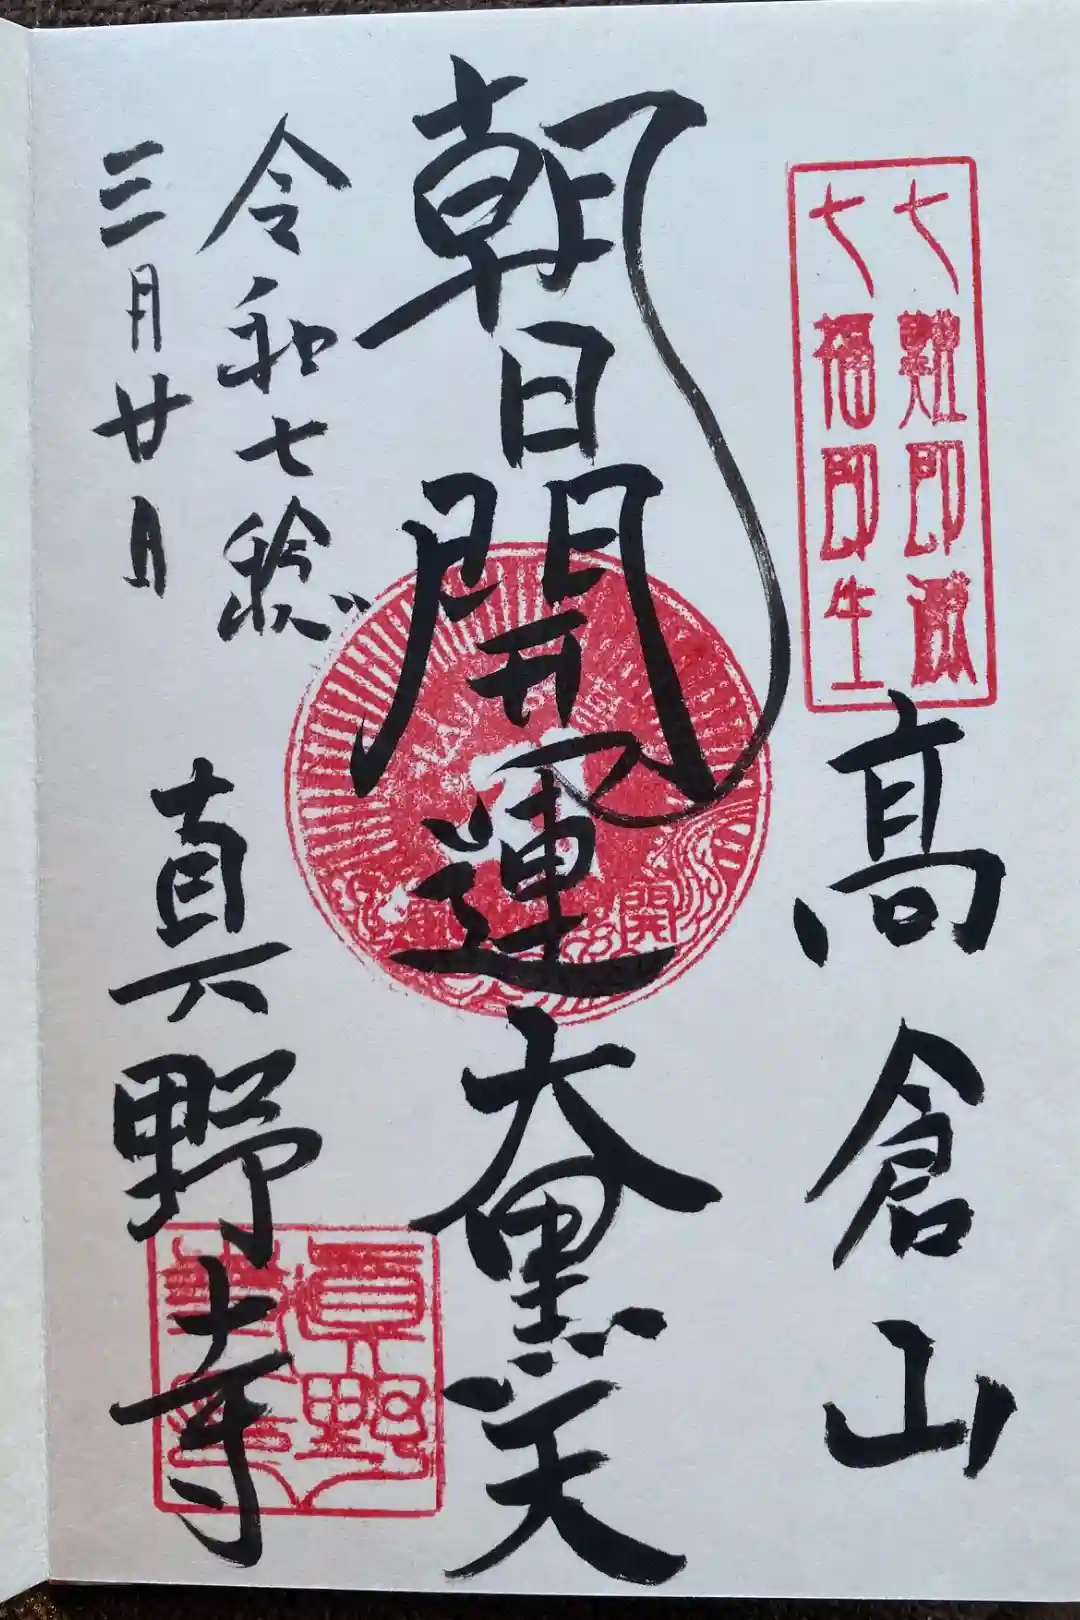 七難即滅
七福即生
高倉山
朝日開運大黒天
令和七稔
三月廿日
真野寺